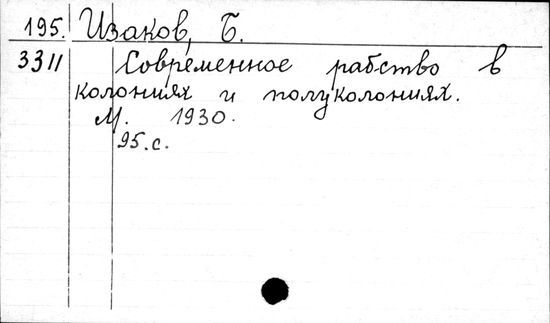 195. Изаков, Б.
3311 Современное рабство в
колониях и полуколониях.
М. 1930.
95.с.